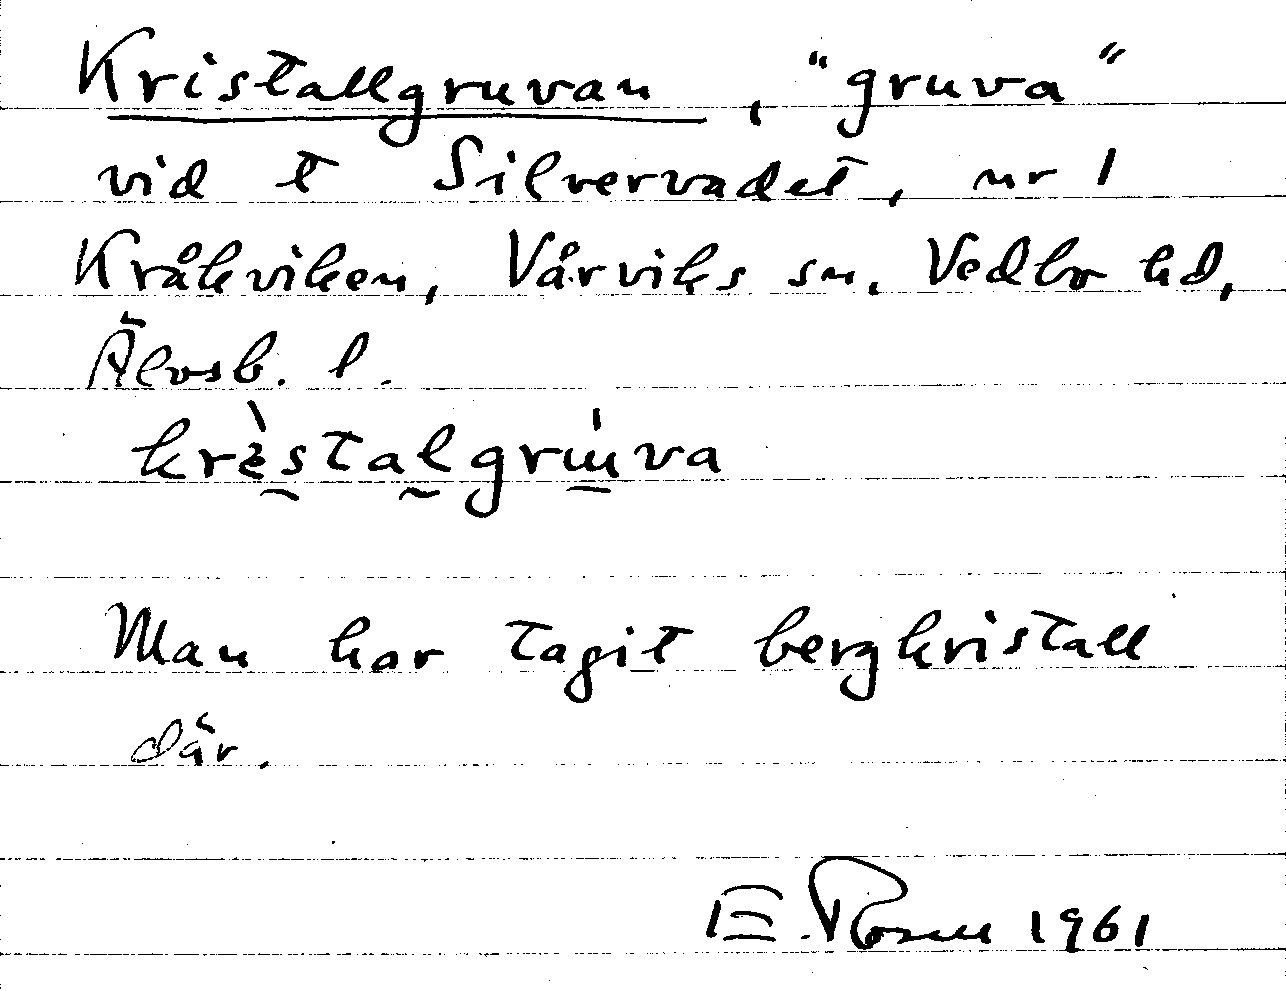 Kristallgruvan, "gruva"
vid t Silvervadet, nr 1
Kråkviken, Vårviks sn, Vedbo hd,
Älvsb. l.
Man har tagit bergkristall
där.
E. Rosell 1961